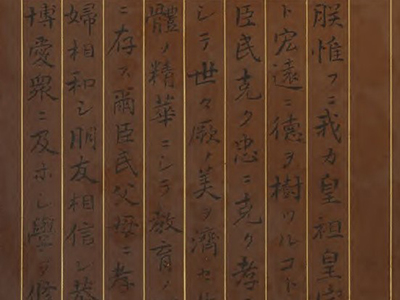 朕惟フニ我カ皇祖皇宗
ト宏遠ニ德ヲ樹ツルコト
臣民克ク忠ニ克ク孝ニ
シテ世々厥ノ美ヲ濟セ
體ノ精華ニシテ敎育ノ
ニ存ス爾臣民父母ニ孝
婦相和シ朋友相信シ恭
博愛衆ニ及ホシ學ヲ修